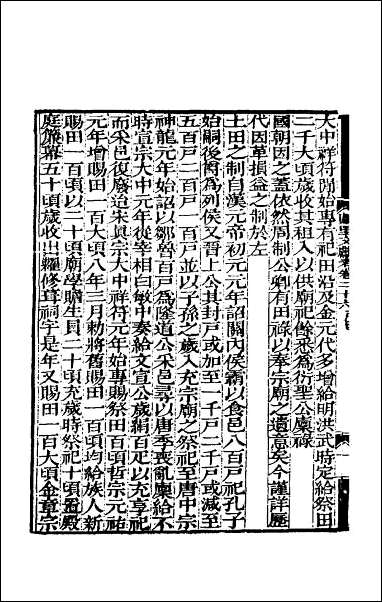 大中祥符間始專有祀田沿及金元代多增給明洪武時定給祭田
二千大頃歲收其租入以供廟祀餘悉爲衍聖公廩祿
國朝因之蓋依然周制公卿有田祿以奉宗廟之遺意矣今謹詳歷
代因革損益之制於左
土田之制自漢元帝初元元年詔關內侯霸以食邑八百戶祀孔子
始嗣後爵爲列侯又晉上公其封戶或加至一千戶二千戶或減至
五百戶二百戶一百戶並以子孫之歲入充宗廟之祭祀至唐中宗
神龍元年始詔以鄒魯百戶爲隆道公采邑尋以唐季喪亂廩給不
時宣宗大中元年從宰相白敏中奏給文宣公歲絹百疋以充享祀
而采邑復廢迨宋眞宗大中祥符元年始專賜祭田百頃哲宗元祐
元年增賜田一百大頃八年三月勅將舊賜田一百頃均給族人新
賜田一百頃以二十頃廟學贍生員二十頃充歲時祭祀十頃置殿
庭簾幕五十頃歲收出糶修葺祠宇是年又賜田一百大頃金章宗